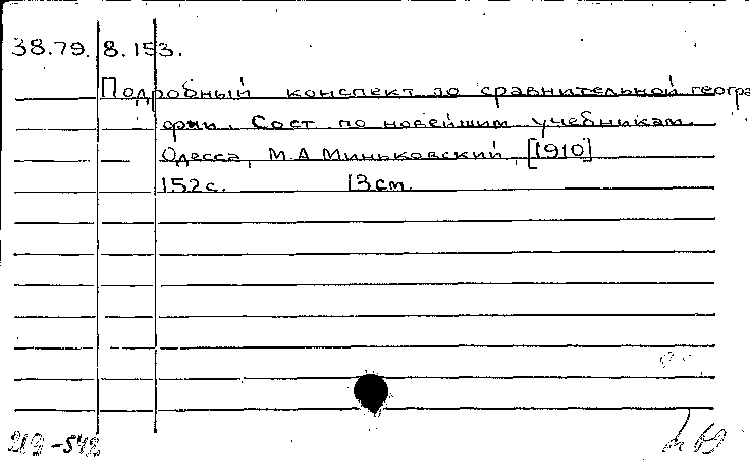 38.79. 8.153.
Подробный конспект по сравнительной геогра
фии. Сост. по новейшим учебникам.
Одесса, М.А Миньковский, [1910]
152с. 13см.
219-548